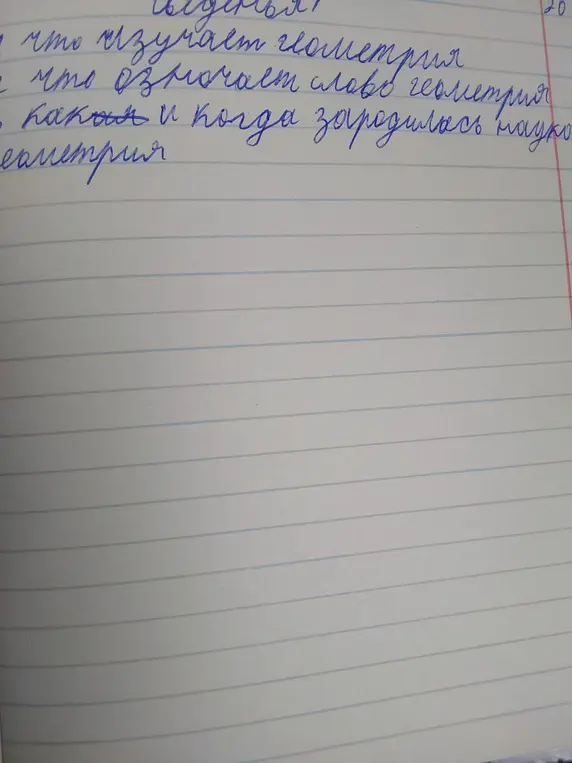 сведенья! 20
что изучает геометрия
что означает слово геометрия
как и когда зародилась наука
еометрия